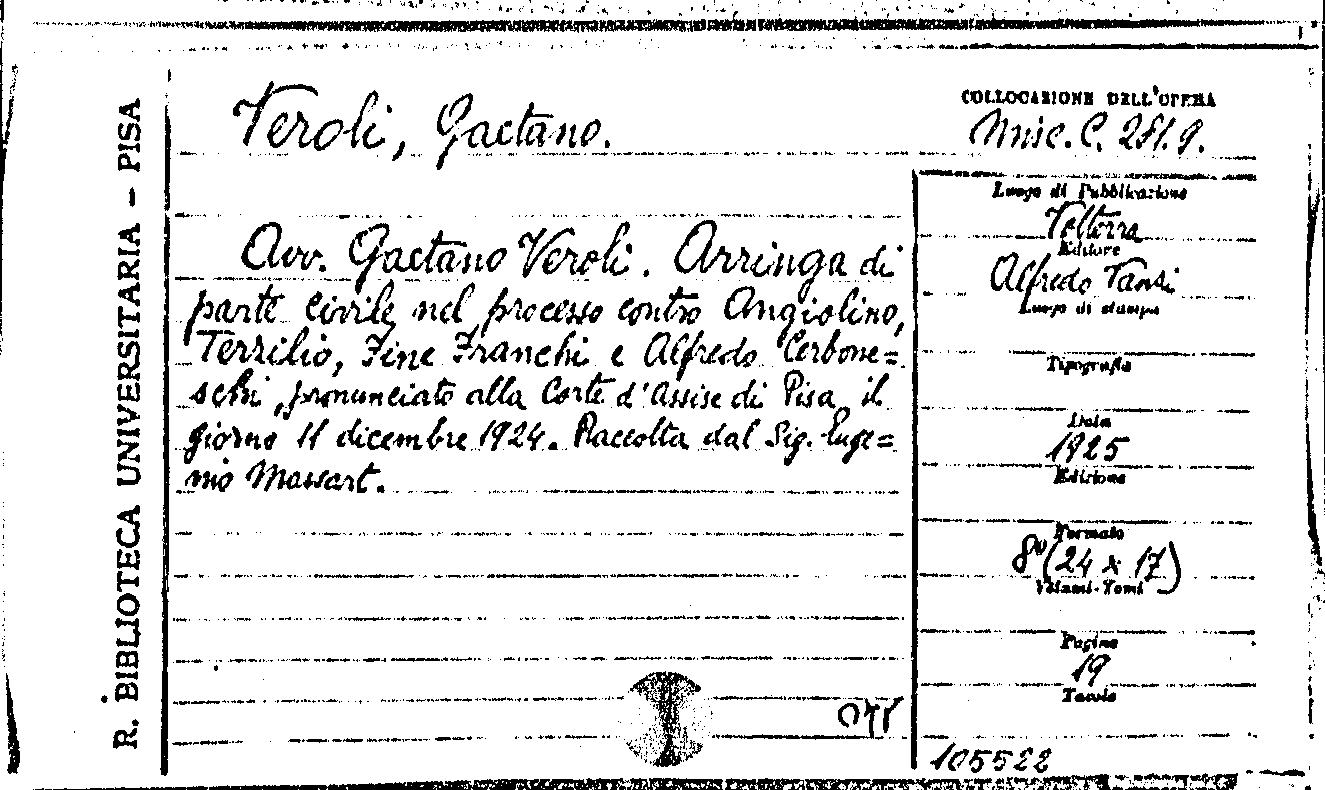 R. BIBLIOTECA UNIVERSITARIA - PISA
Veroli, Gaetano.
Avv. Gaetano Veroli. Arringa di
parte civile nel processo contro Angiolino,
Terzilio, Fine Franchi e Alfredo Cerbone=
schi, pronunciato alla Corte d'Assise di Pisa il
giorno 11 dicembre 1924. Raccolta dal Sig. Euge=
nio Massart.
COLLOCAZIONE DELL'OPERA
Misc. C. 281.9.
Luogo di Pubblicazione
Volterra
Editore
Alfredo Tansi
Luogo di stampa
Tipografia
Data
1925
Edizione
Formato
8° (24 x 17)
Volumi-Tomi
Pagine
19
Tavole
105522